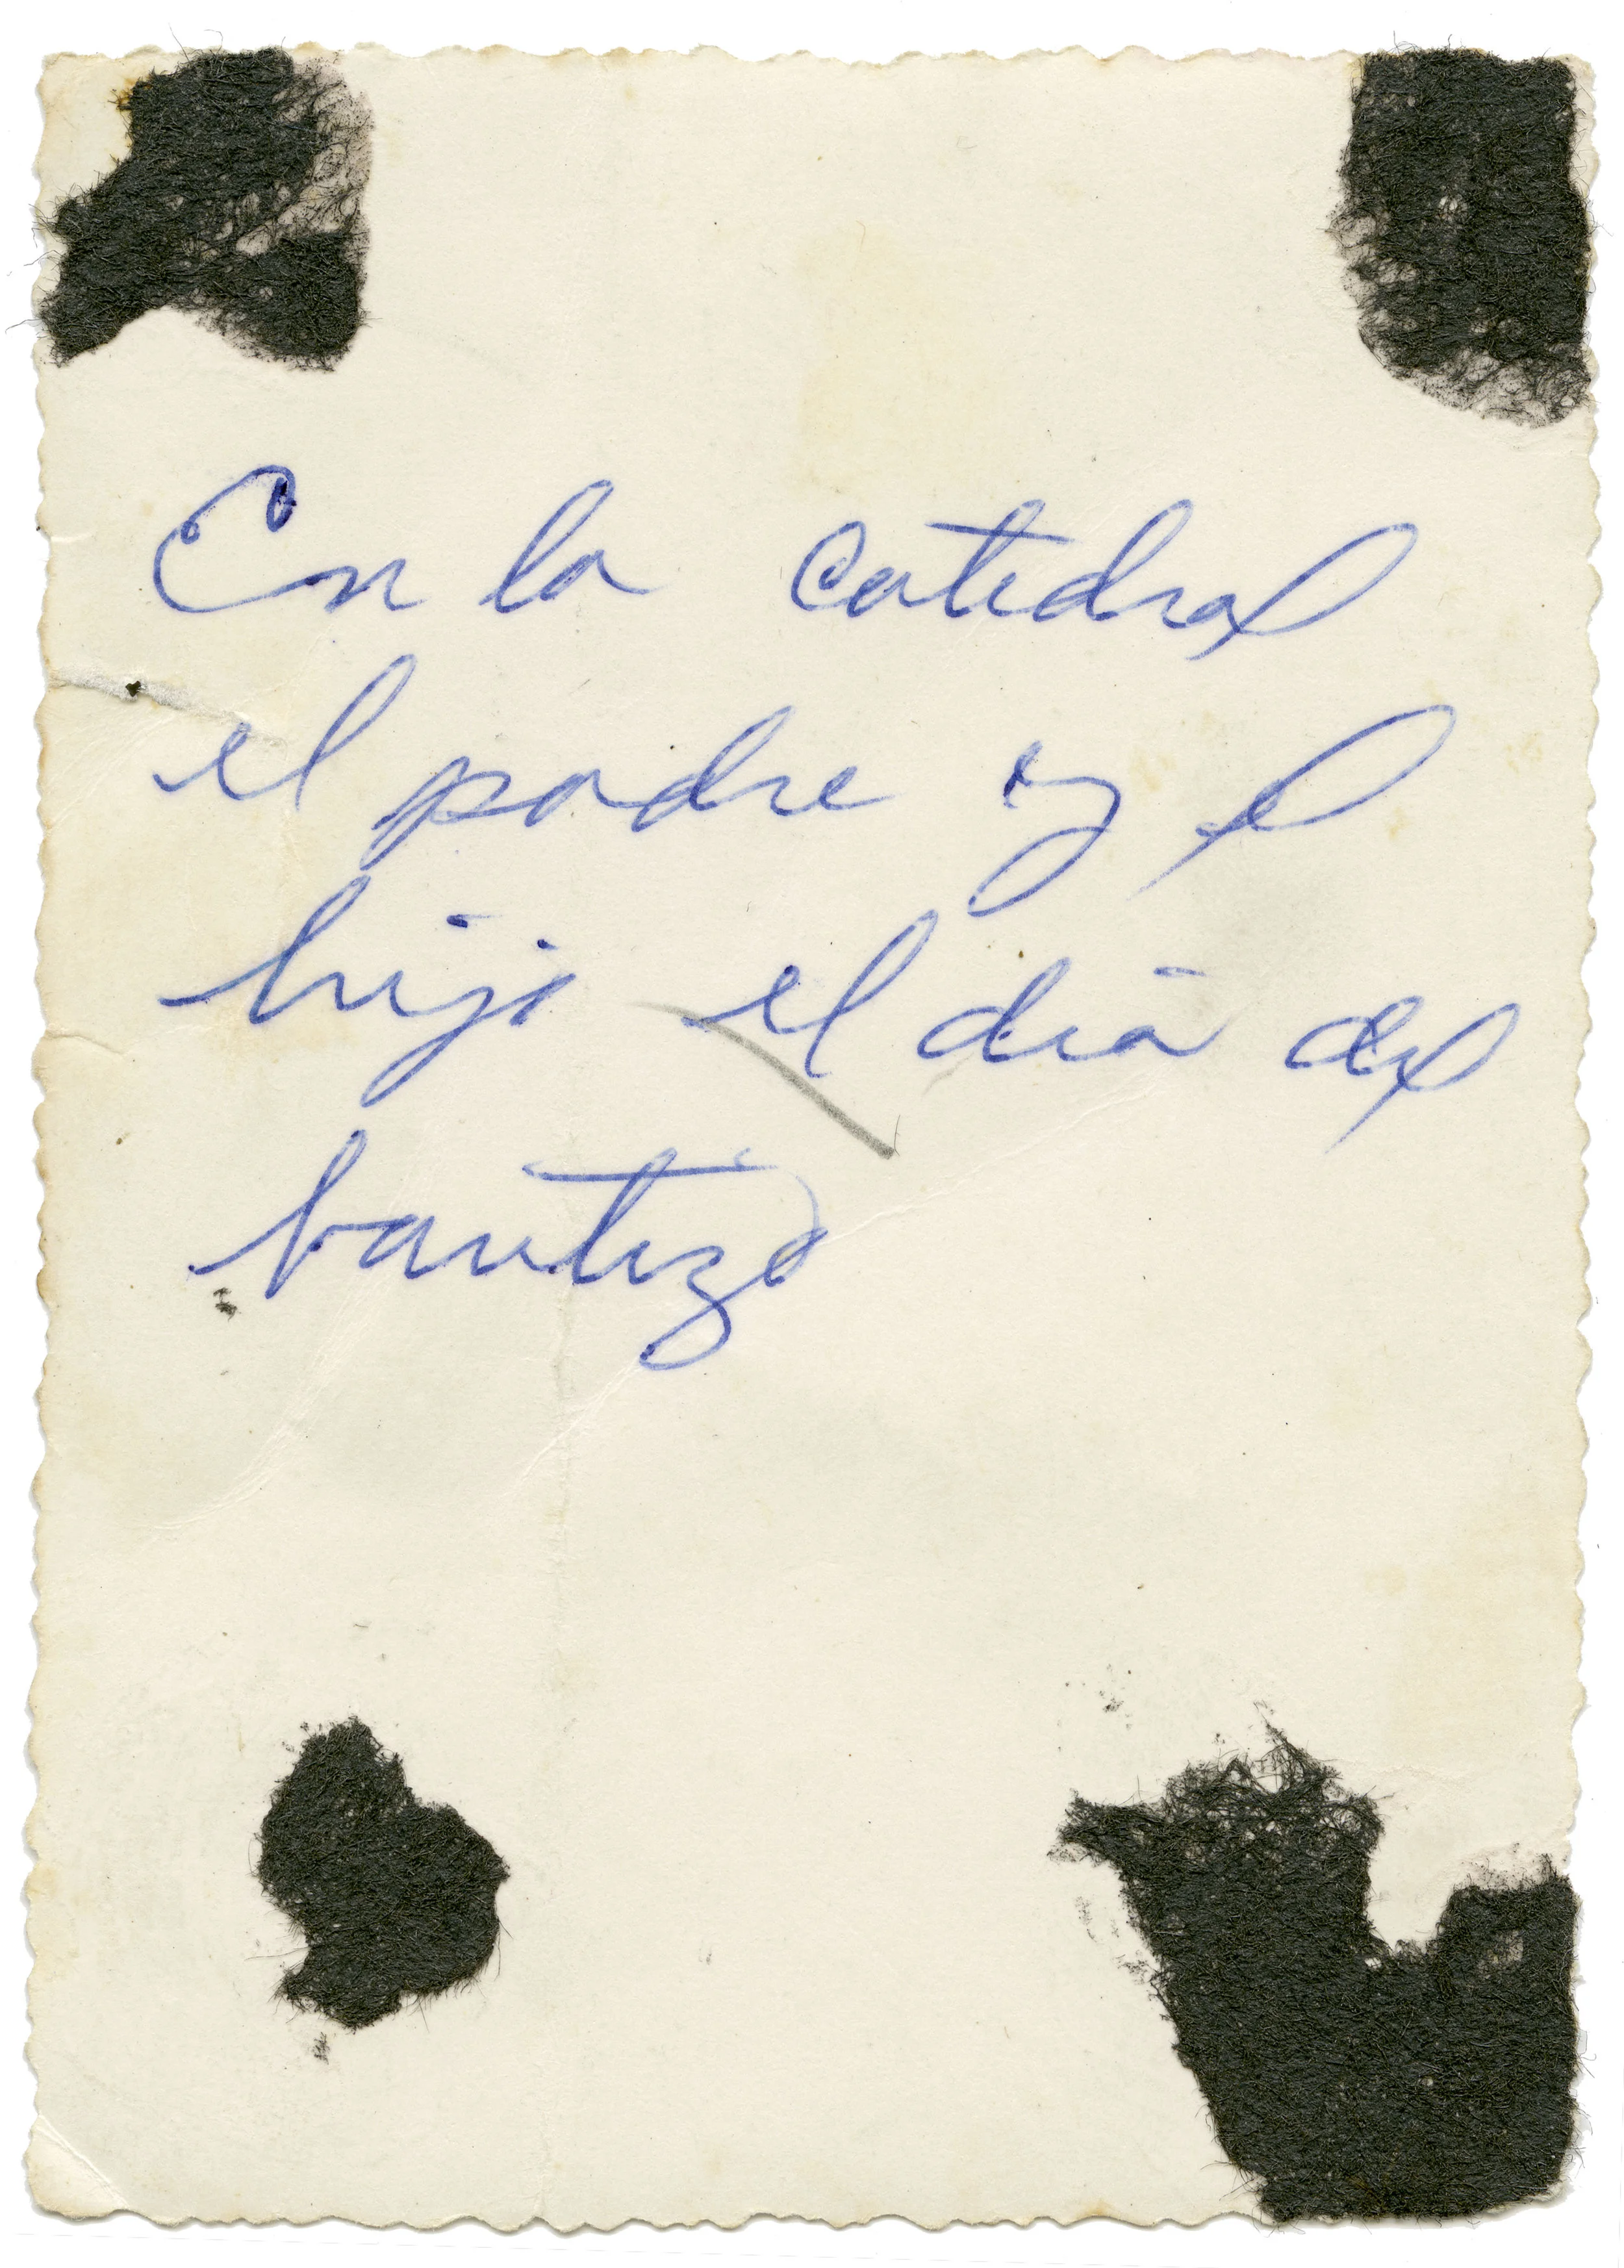 En la catedral
el padre y el
hijo el día del
bautizo